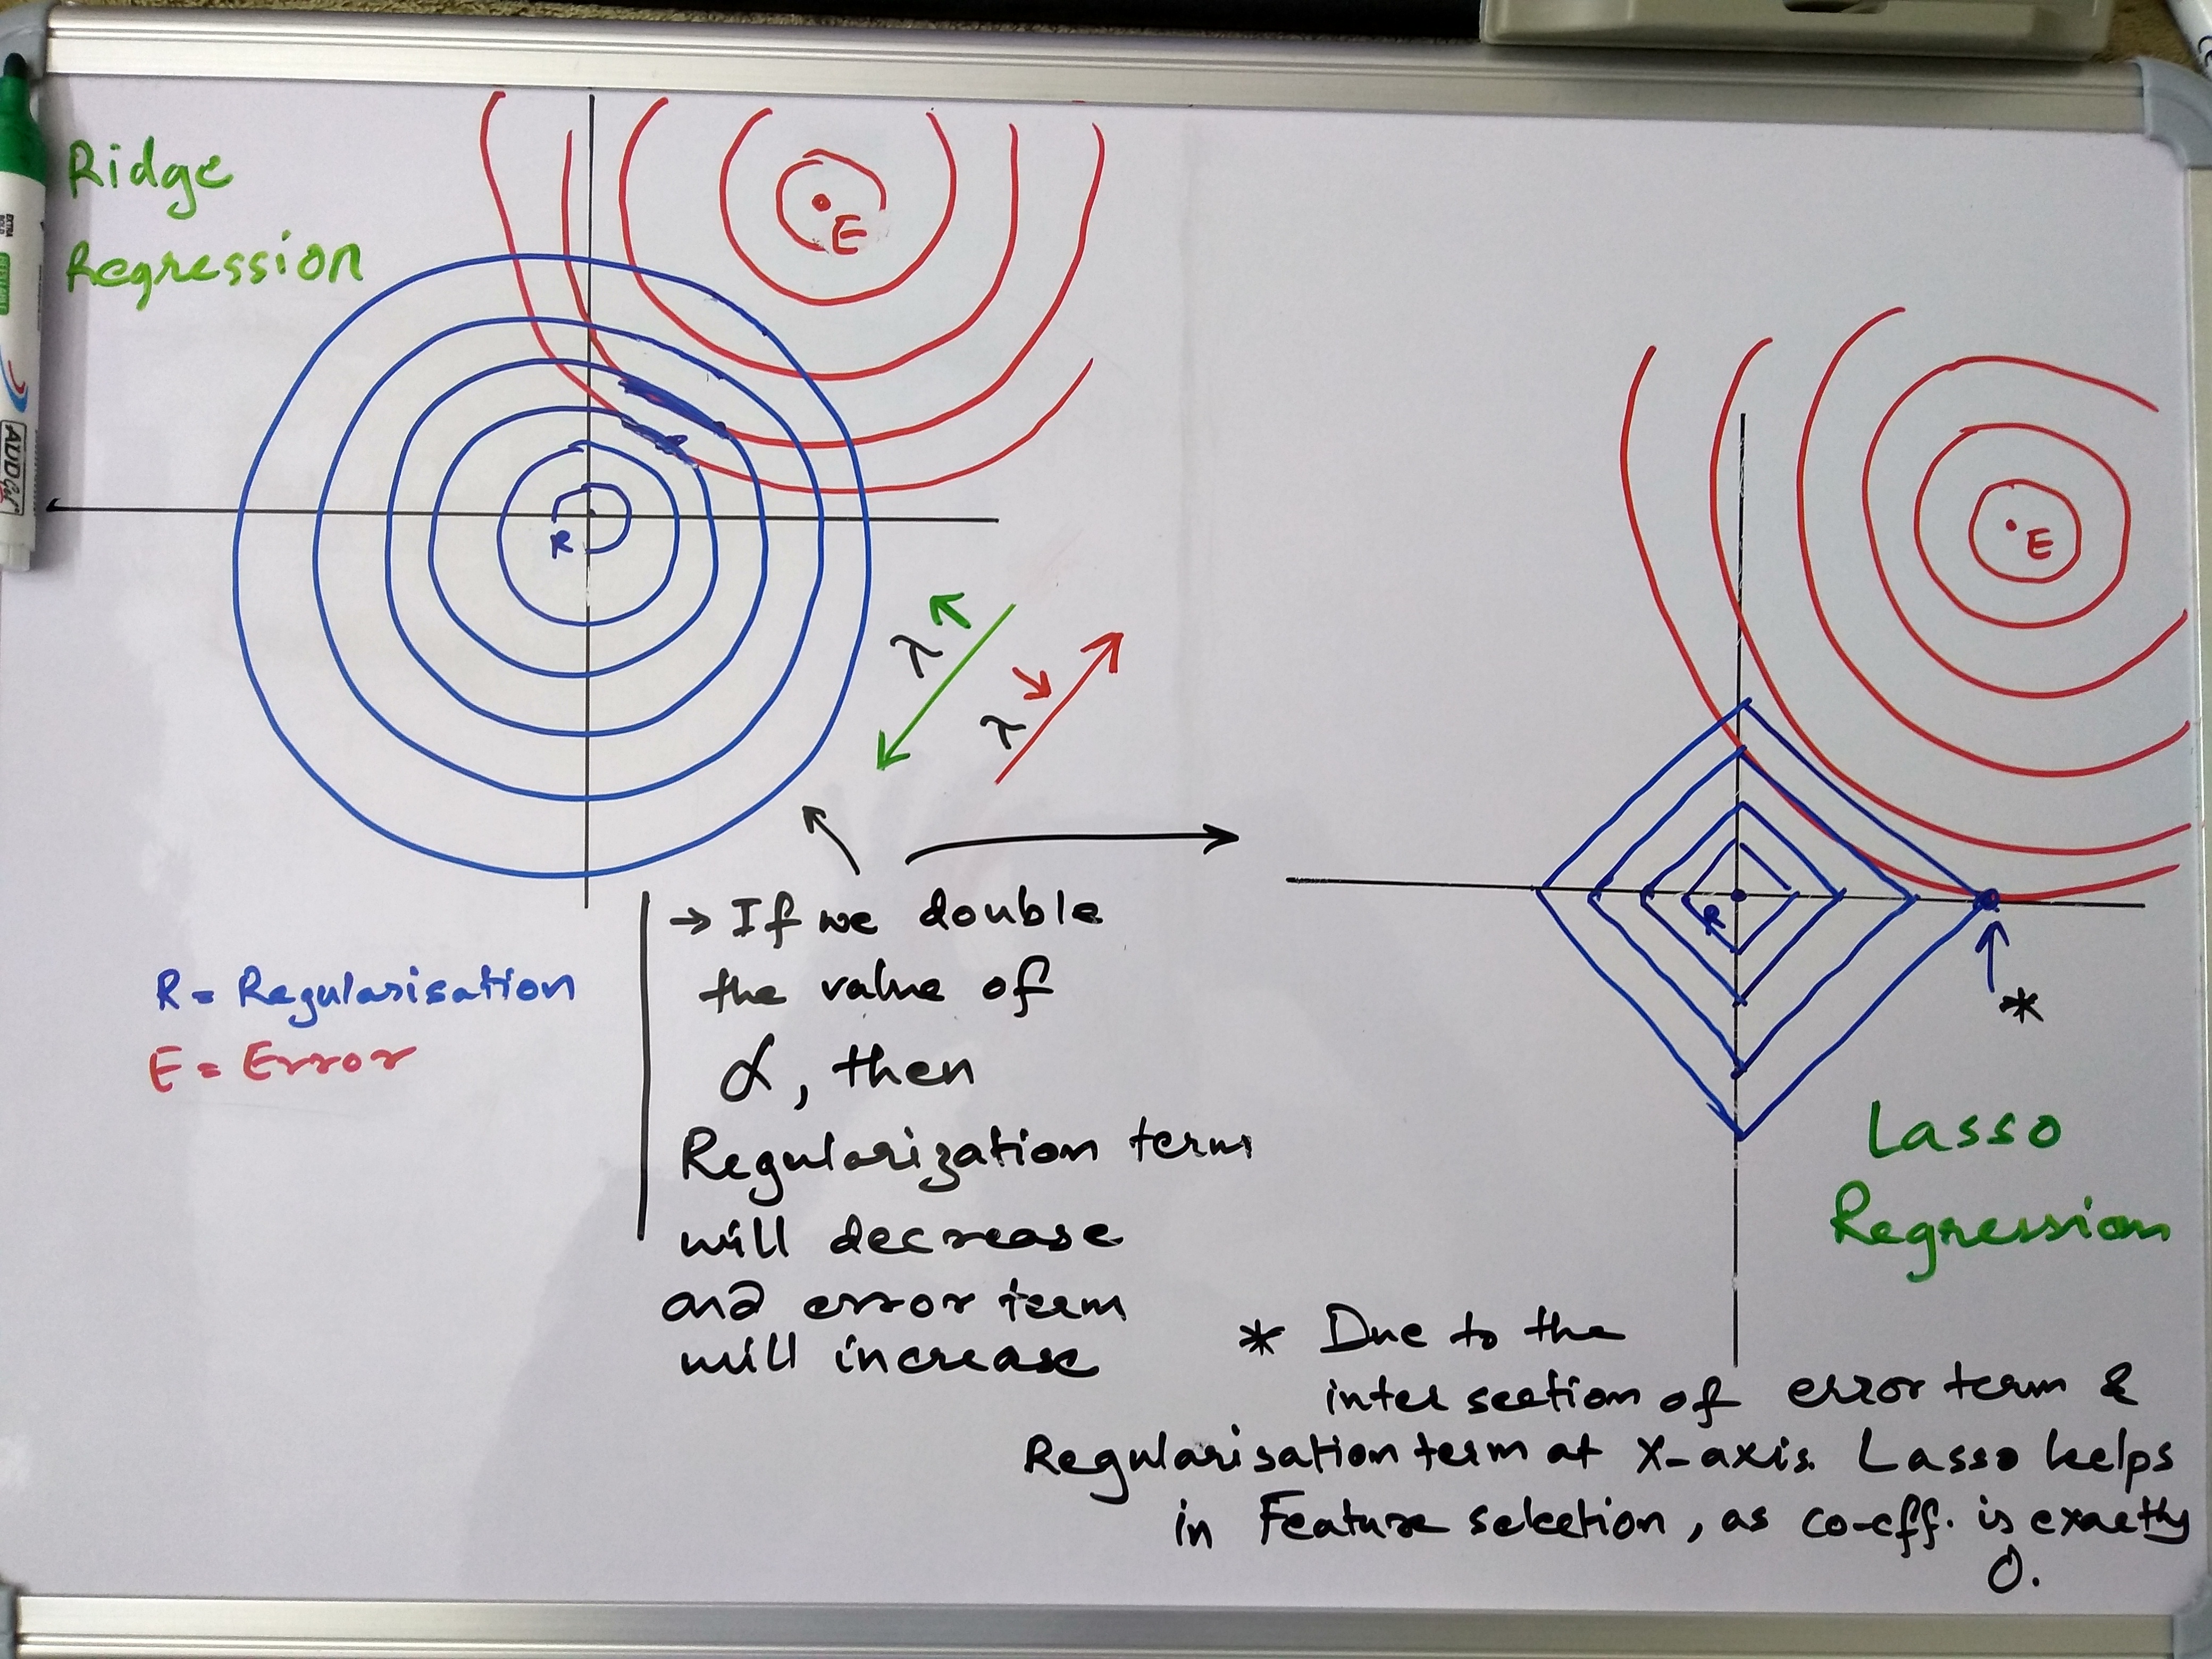 Ridge
Regression
E
R
λ
λ
R = Regularisation
E = Error
→ If we double
the value of
α, then
Regularization term
will decrease
and error term
will increase
E
R
*
Lasso
Regression
* Due to the
intersection of error term &
Regularisation term at X-axis. Lasso helps
in Feature selection, as co-eff. is exactly
0.
EXTRA
BOLD
REFILLABLE
ADD Gel